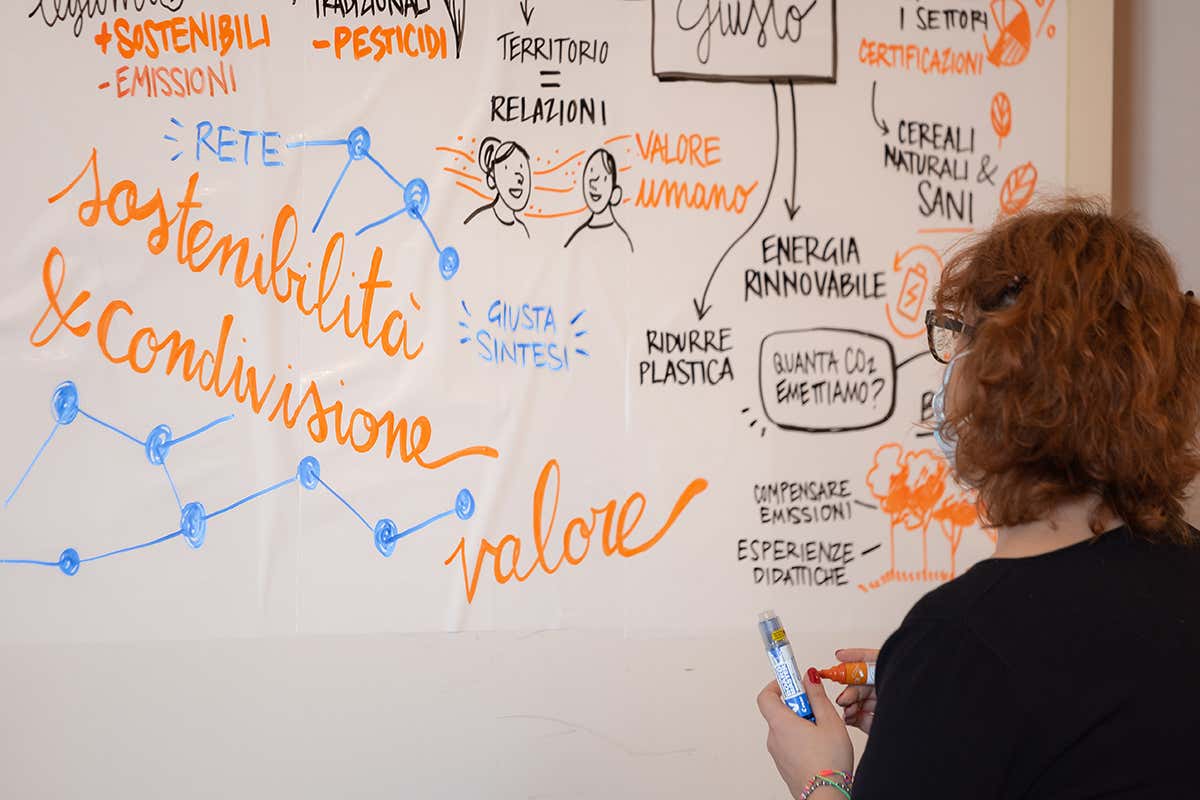 legumi
+SOSTENIBILI
-EMISSIONI
TRADIZIONALI
-PESTICIDI
TERRITORIO
=
RELAZIONI
Giusto
I SETTORI
%
CERTIFICAZIONI
CEREALI
NATURALI &
SANI
RETE
VALORE
umano
sostenibilità
& condivisione
valore
GIUSTA
SINTESI
ENERGIA
RINNOVABILE
RIDURRE
PLASTICA
QUANTA CO2
EMETTIAMO?
COMPENSARE
EMISSIONI
ESPERIENZE
DIDATTICHE